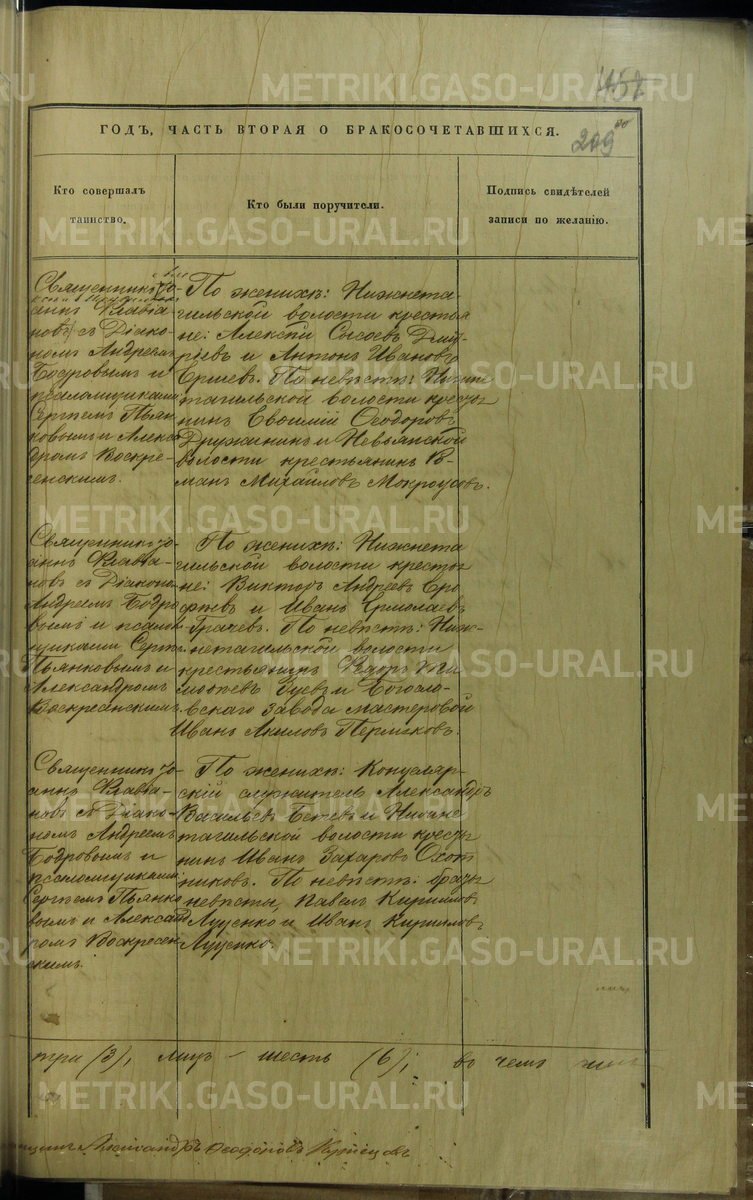 METRIKI.GASO-URAL.RU
209
ГОДЪ, ЧАСТЬ ВТОРАЯ О БРАКОСОЧЕТАВШИХСЯ.
Кто совершалъ
таинство.
Кто были поручители.
Подпись свидѣтелей
записи по желанію.
Священникъ Іо-
аннъ Флавіа-
новъ съ Діако-
номъ Андреемъ
Бодровымъ и
псаломщиками
Сергіемъ Пьян-
ковымъ и Алекса
дромъ Воскре-
сенскимъ.
По женихѣ: Нижнета-
гильской волости крестья
не: Алексѣй Сысоевъ Дмит-
ріевъ и Антонъ Ивановъ
Ершевъ. По невѣстѣ: Нижне
тагильской волости кресть
нинъ Евѳимій Ѳеодоровъ
Дружининъ и Невьянской
волости крестьянинъ Ро-
манъ Михайловъ Мокроусовъ.
Священникъ Іо-
аннъ Флавіа-
новъ съ Діакономъ
Андреемъ Бодро
вымъ и псалом
щиками Сергіе
Пьянковымъ и
Александромъ
Воскресенскимъ.
По женихѣ: Нижнета
гильской волости крестья
не: Викторъ Андреевъ Еро
фѣевъ и Иванъ Ермолаевъ
Грачевъ. По невѣстѣ: Ниж-
нетагильской волости
крестьянинъ
Зуевъ и Богосло-
вскаго завода мастеровой
Иванъ Акиловъ Пермяковъ.
Священникъ Іо-
аннъ Флавіа-
новъ съ Діако-
номъ Андреемъ
Бодровымъ и
псаломщиками:
Сергіемъ Пьянко
вымъ и Александ
ромъ Воскресен
скимъ.
По женихѣ: Канцеляр-
скій служитель Александръ
Васильевъ и Нижне
тагильской волости кресть
нинъ Иванъ Захаровъ Охот
никовъ. По невѣстѣ: братья
невѣсты Павелъ Кирилловъ
Луценко и Иванъ Кирилловъ
Луценко.
три (3), лицъ – шесть (6); въ чемъ
Александръ Ѳеодоровъ